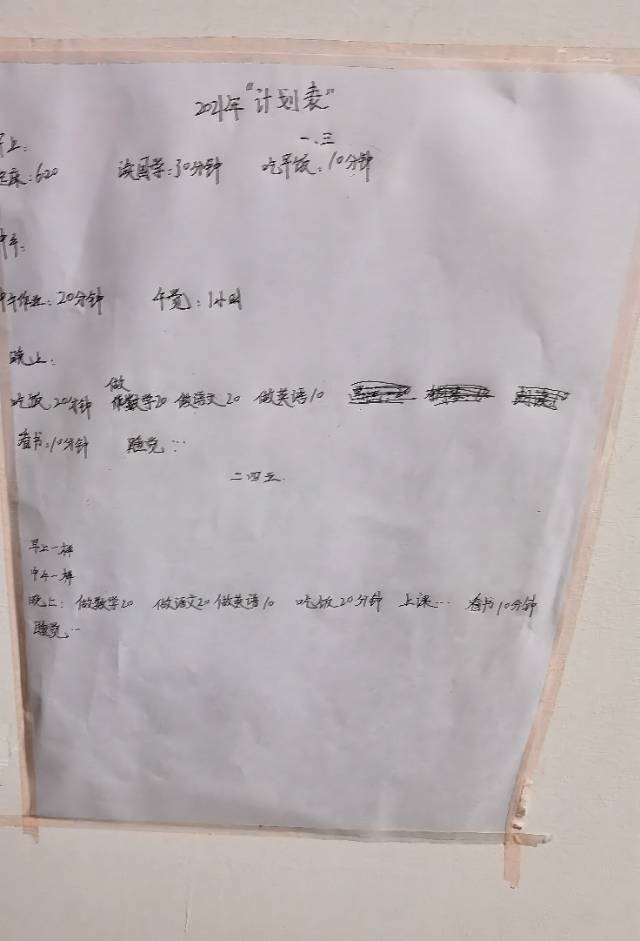 2021年“计划表”
一、三
早上:
起床:620 读国学:30分钟 吃早饭:10分钟
中午:
中午作业:20分钟 午觉:1小时
晚上:
做
吃饭20分钟 数学20 做语文20 做英语10
看书:10分钟 睡觉…
二四五
早上一样
中午一样
晚上:做数学20 做语文20 做英语10 吃饭20分钟 上课… 看书10分钟
睡觉…